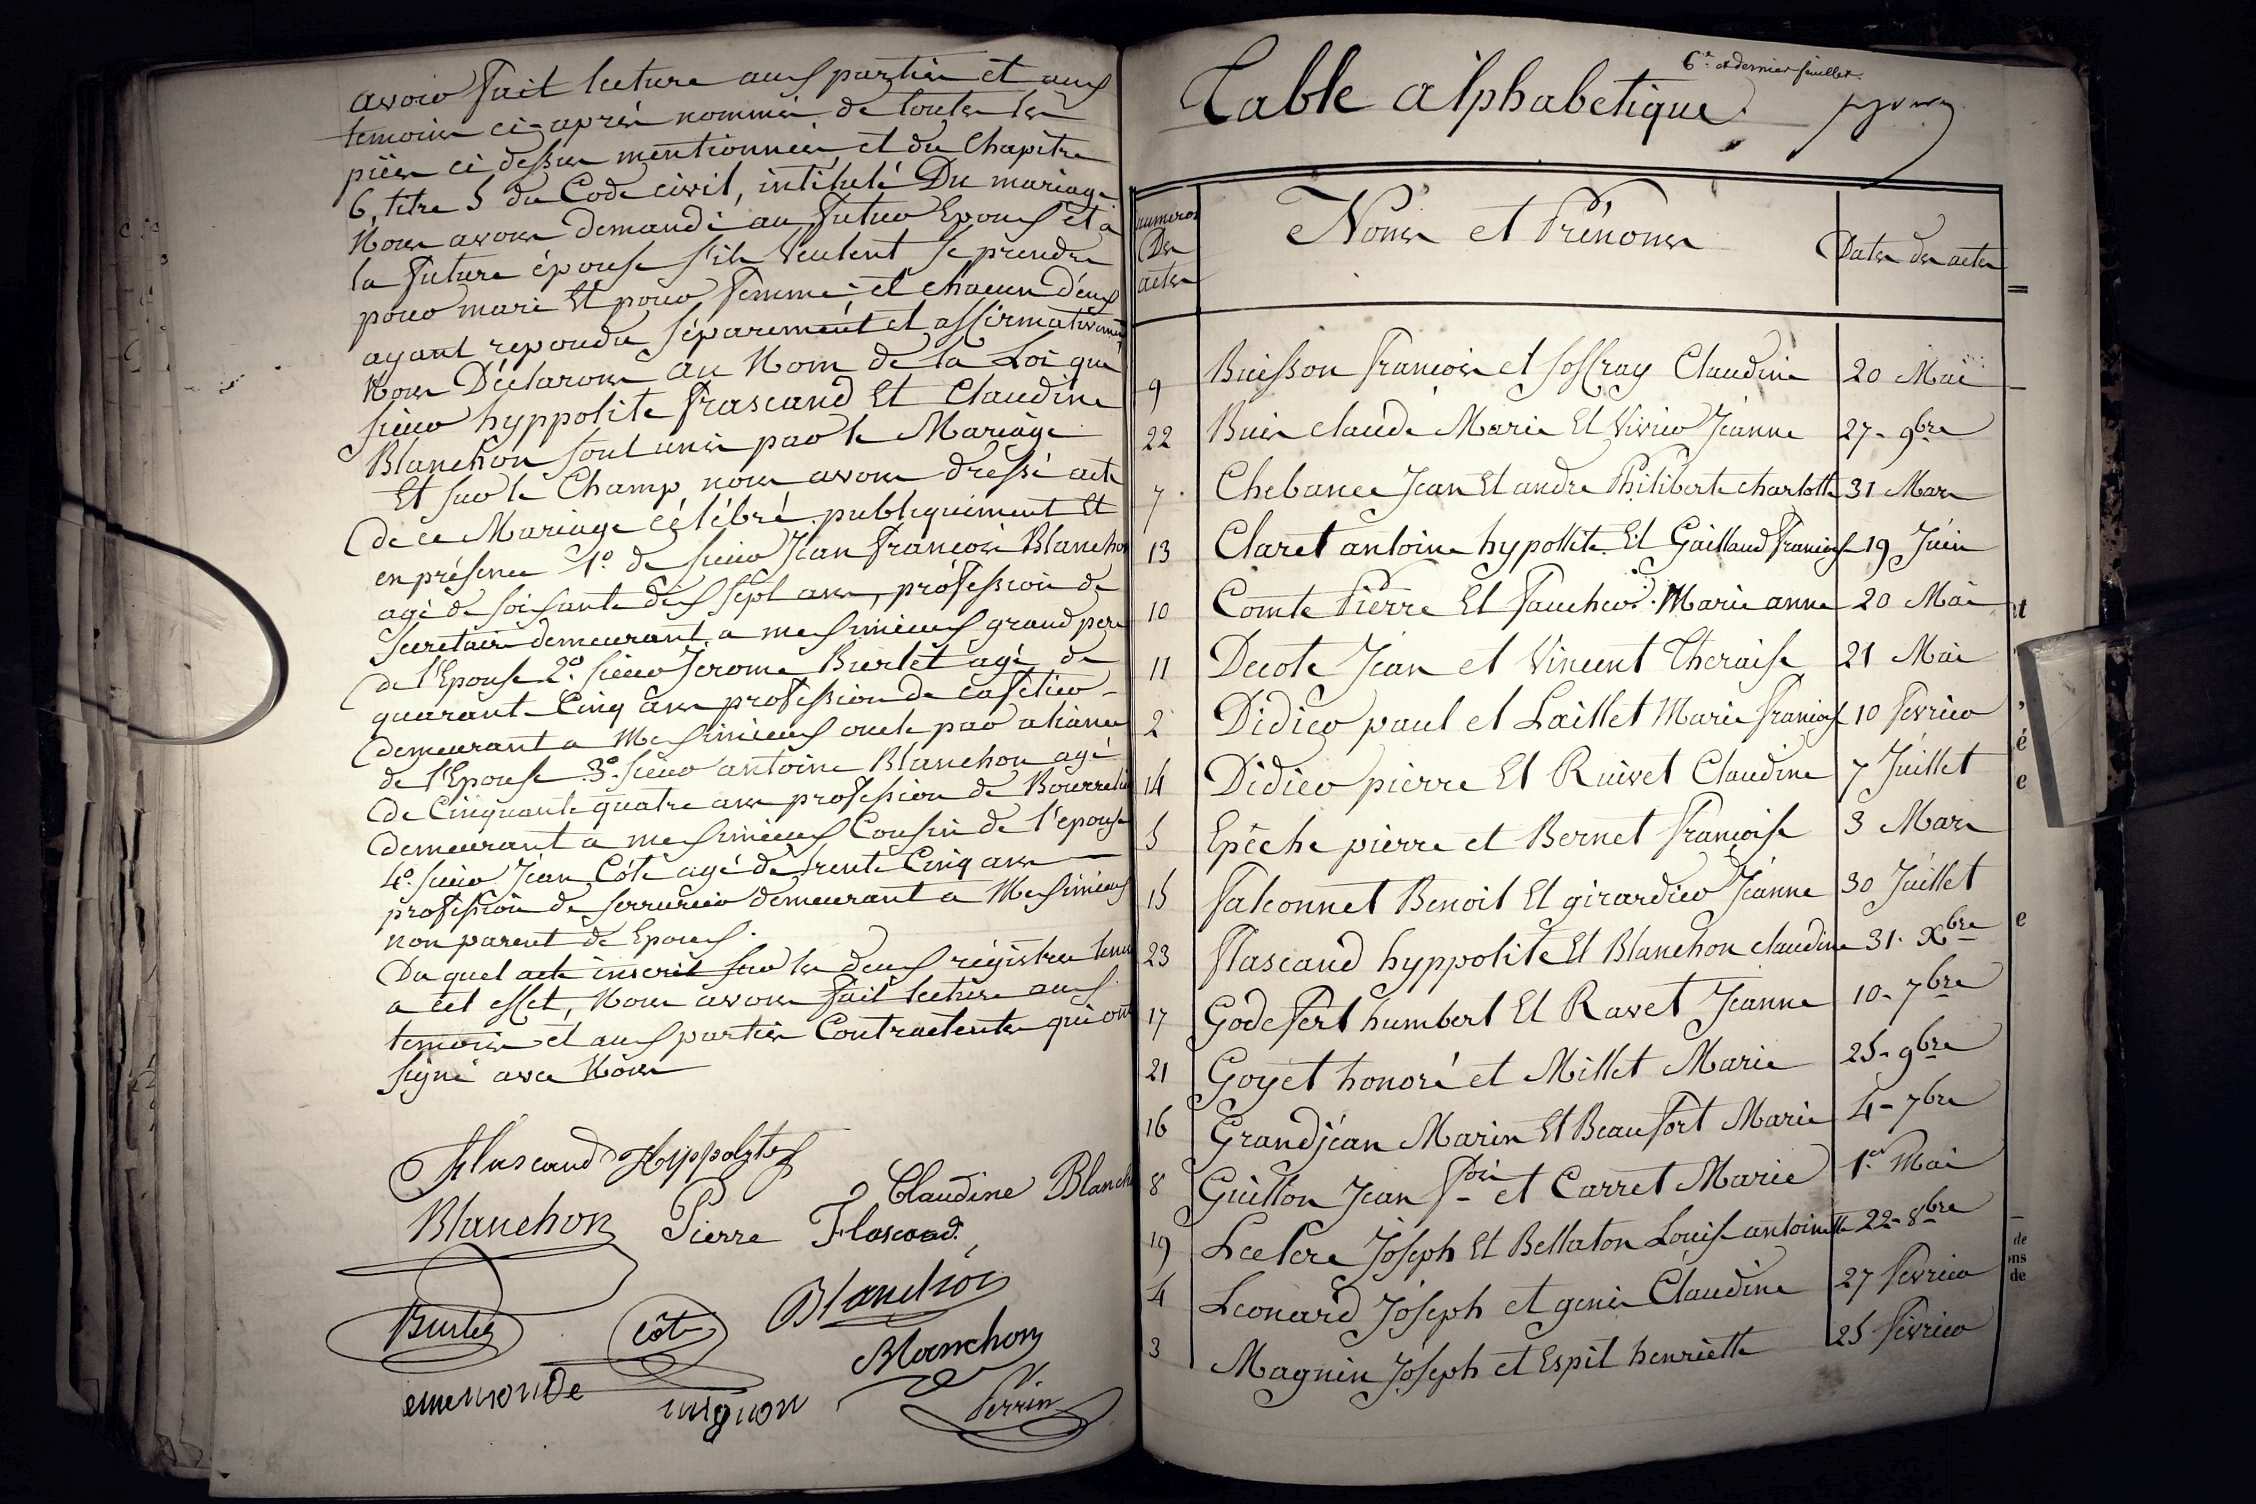 avoir fait lecture aux parties et aux
temoins ci-après nommés de toutes les
pièces ci dessus mentionnées et du Chapitre
6, titre 5 du Code civil, intitulé Du mariage
Nous avons demandé au futur Epoux et à
la future épouse s'ils veulent se prendre
pour mari Et pour femme et chacun d'eux
ayant repondu séparement et affirmativement
Nous Déclarons au Nom de la Loi que
sieur hyppolite flascaud Et Claudine
Blanchon sont unis par le Mariage
Et sur le Champ nous avons dressé acte
de ce Mariage célébré publiquement Et
en présence 1º de sieur Jean françois Blanchon
agé de soixante dix sept ans, profession de
Secretaire demeurant a meximieux grand pere
de l'Epouse 2º. sieur Jerome Burlet agé de
quarante Cinq ans profession de cafetier
demeurant a Meximieux oncle par aliance
de l'Epouse 3º. sieur antoine Blanchon agé
de Cinquante quatre ans profession de Bourrelier
demeurant a meximieux Cousin de l'epouse
4º. sieur Jean Côte agé de trente Cinq ans
profession de serrurier demeurant a Meximieux
non parent de Epoux.
Du quel acte inscrit sur les deux régistres tenus
a cet effet, Nous avons fait lecture aux
temoins et aux parties Contractentes qui ont
signé avec Nous
Flascaud Hyppolyte
Claudine Blanch
Blanchon Pierre Flascaud.
Burlet Côte Blanchon
Blanchon
mignon Perrin
6e. et dernier feuillet.
Table alphabetique
numeros Des actes
Noms et Prénoms
Dates des actes
9 Buisson françois et soffray Claudine 20 Mai
22 Buis claude Marie Et Vivier Jeanne 27 - 9bre
7 Chebance Jean Et andre Philiberte charlotte 31 Mars
13 Claret antoine hypollite Et Gaillaud françoise 19 Juin
10 Comte Pierre Et Faucheur Marie anne 20 Mai
11 Decote Jean et Vincent Theraise 21 Mai
2 Didier paul et Laillet Marie françoise 10 fevrier
14 Didier pierre Et Ruivet Claudine 7 Juillet
5 Epêche pierre et Bernet françoise 3 Mars
15 falconnet Benoit Et girardier Jeanne 30 Juillet
23 flascaud hyppolite Et Blanchon claudine 31. Xbre
17 Godefert humbert Et Ravet Jeanne 10 - 7bre
21 Goyet honoré et Millet Marie 25 - 9bre
16 Grandjean Marin Et Beaufort Marie 4 - 7bre
8 Guillon Jean fois et Carret Marie 1er Mai
19 Leclere Joseph Et Bellaton Louise antoinette 22 - 8bre
4 Leonard Joseph et genis Claudine 27 fevrier
3 Magnin Joseph et Espit henriette 25 fevrier